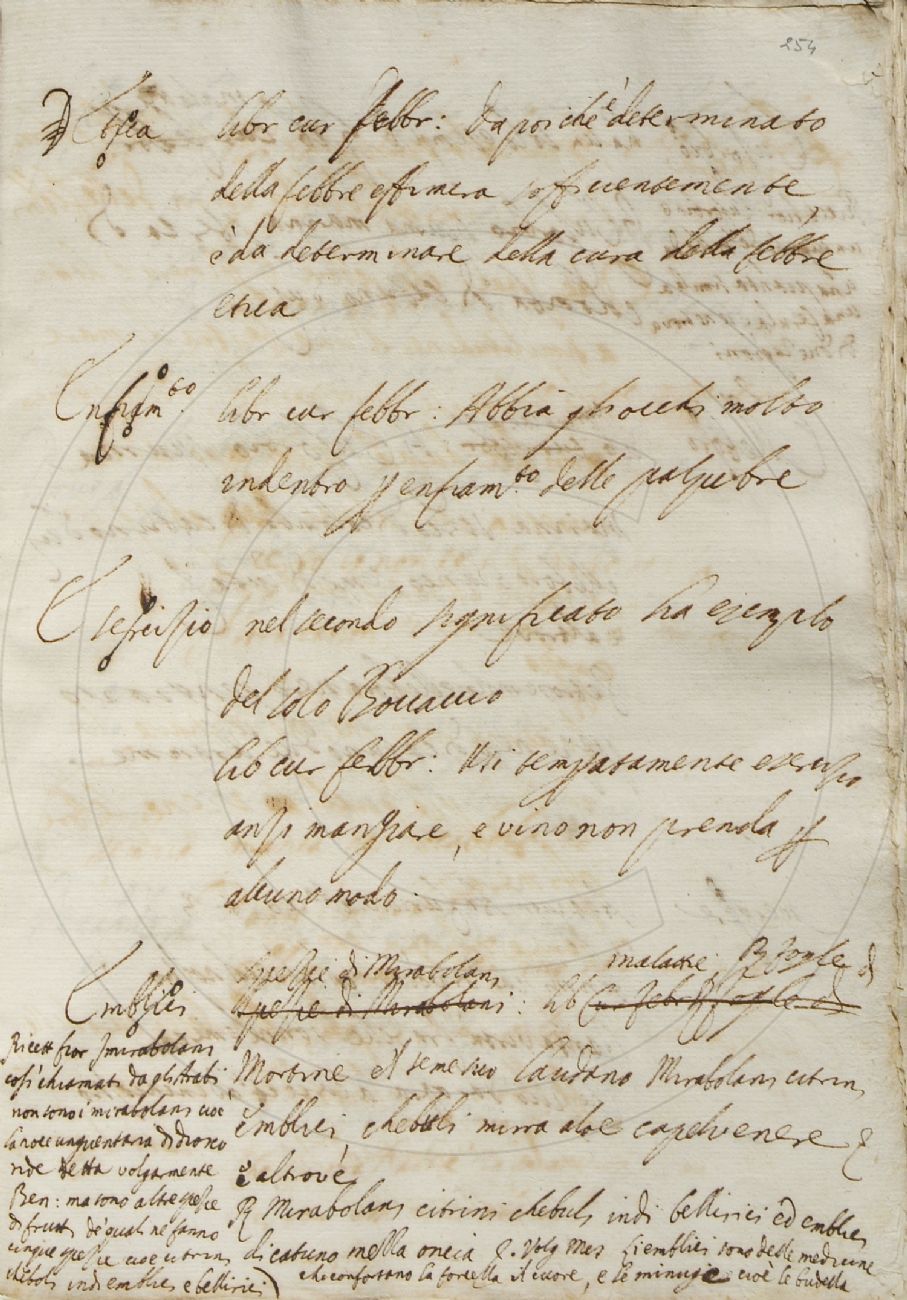 254
Etica libr cur febbr: Da poiche è determinato
della febbre effimera sofficientemente,
è da determinare della cura della febbre
etica
Enfiam.to libr cur febbr: Abbia gli occhi molto
indentro p enfiam.to delle palpebre
Esercizio nel secondo significato ha esemplo
del solo Boccaccio
lib cur febbr: Usi temperatamente esercizio
anzi mangiare, e vino non prenda p
alcuno modo.
spezie di Mirabolani malattie, R foglie d
Emblici spezie di Mirabolani: lib cur febr R foglie di
Mortine e 'l seme suo laudano Mirabolani citrini
emblici chebuli mirra aloe capelvenere &
e altrove
R Mirabolani citrini chebuli indi bellirici ed emblici
di catuno mezza oncia &. Volg Mes Gi emblici sono delle medicine
che confortano la forcella il cuore, e le minugie cioè le budella
Ricett fior I mirabolani
così chiamati dagli Arabi
non sono i mirabolani cioè
la noce unguentaria di Diosco
ride detta volgarmente
Ben: ma sono altre spezie
di frutti de quali ne sanno
cinque spezie cioè citrini
cheboli indi emblici e bellirici